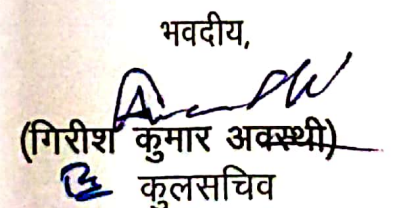 भवदीय,
(गिरीश कुमार अवस्थी)
कुलसचिव